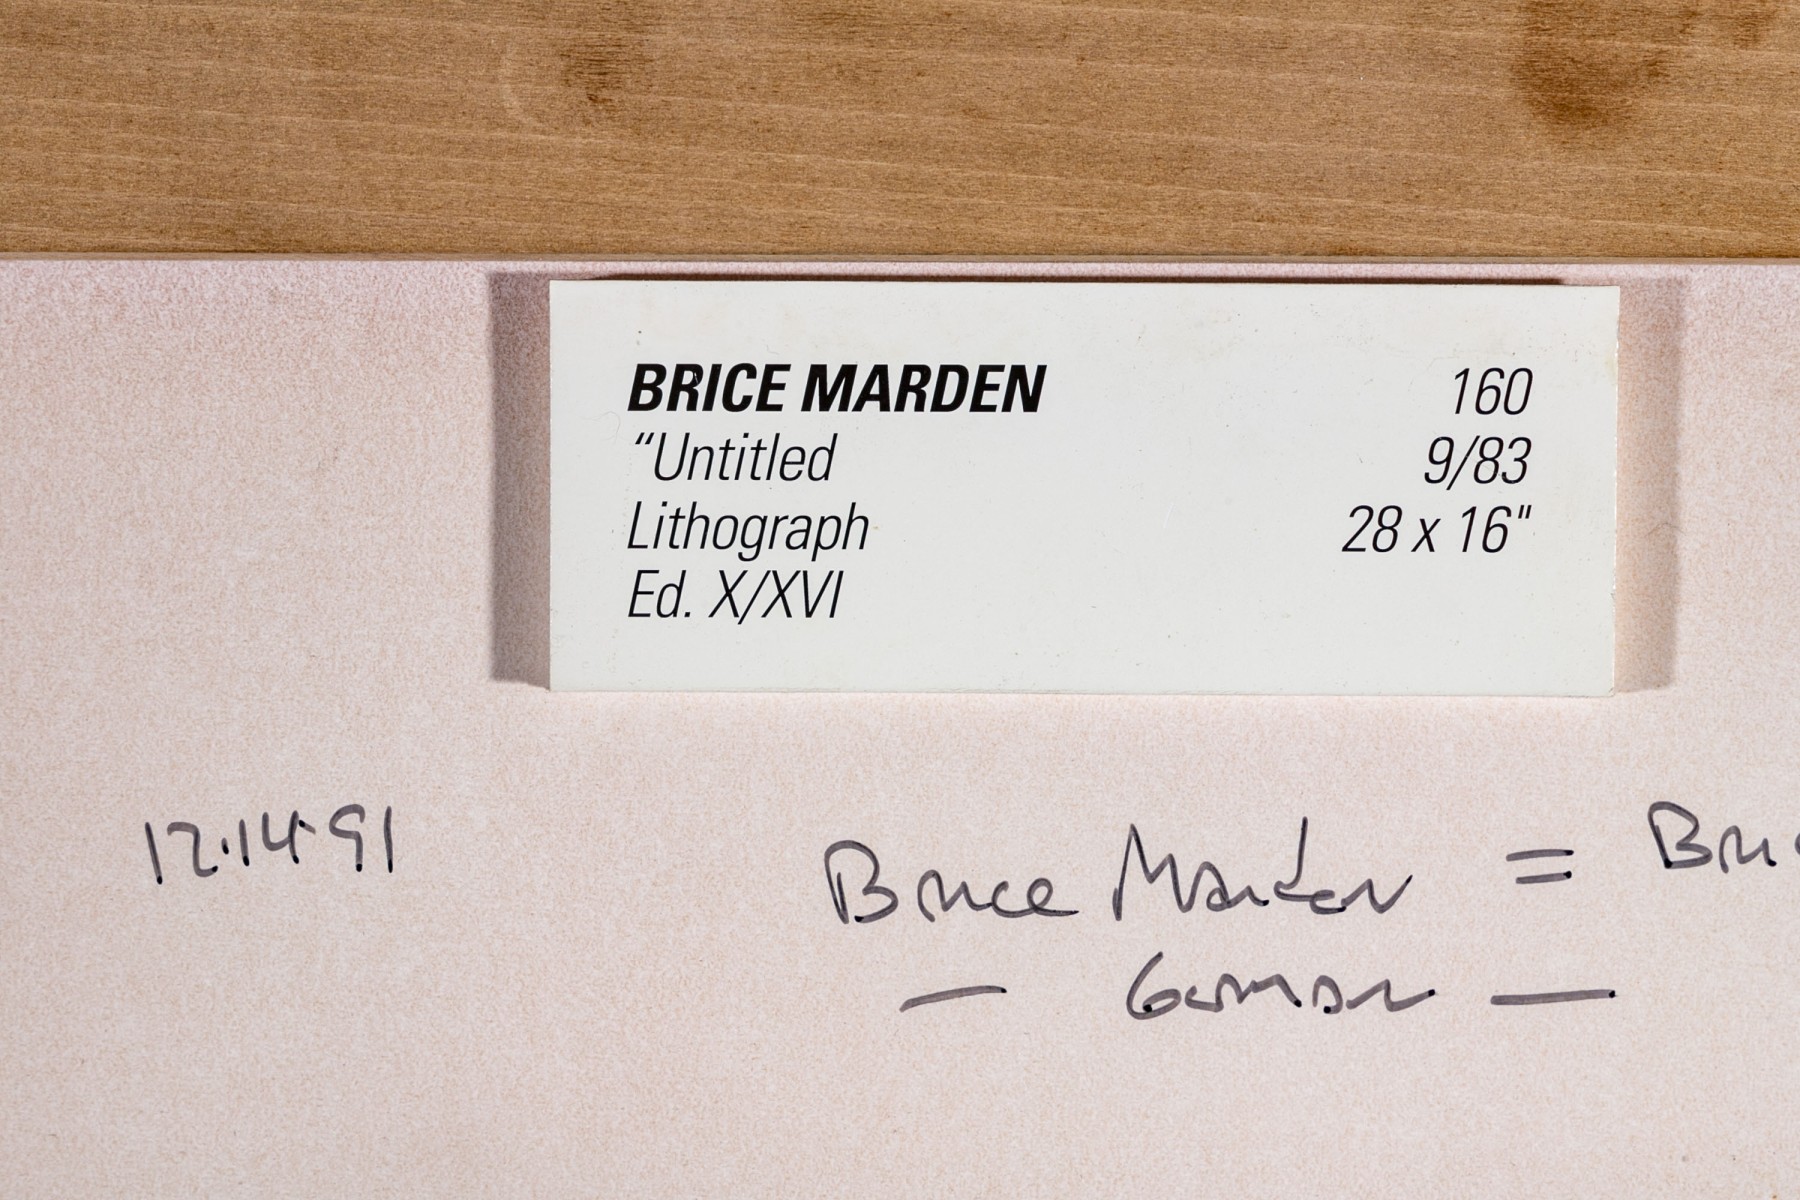 BRICE MARDEN 160
“Untitled 9/83
Lithograph 28 x 16"
Ed. X/XVI
12·14·91 Brice Marden =
— German —